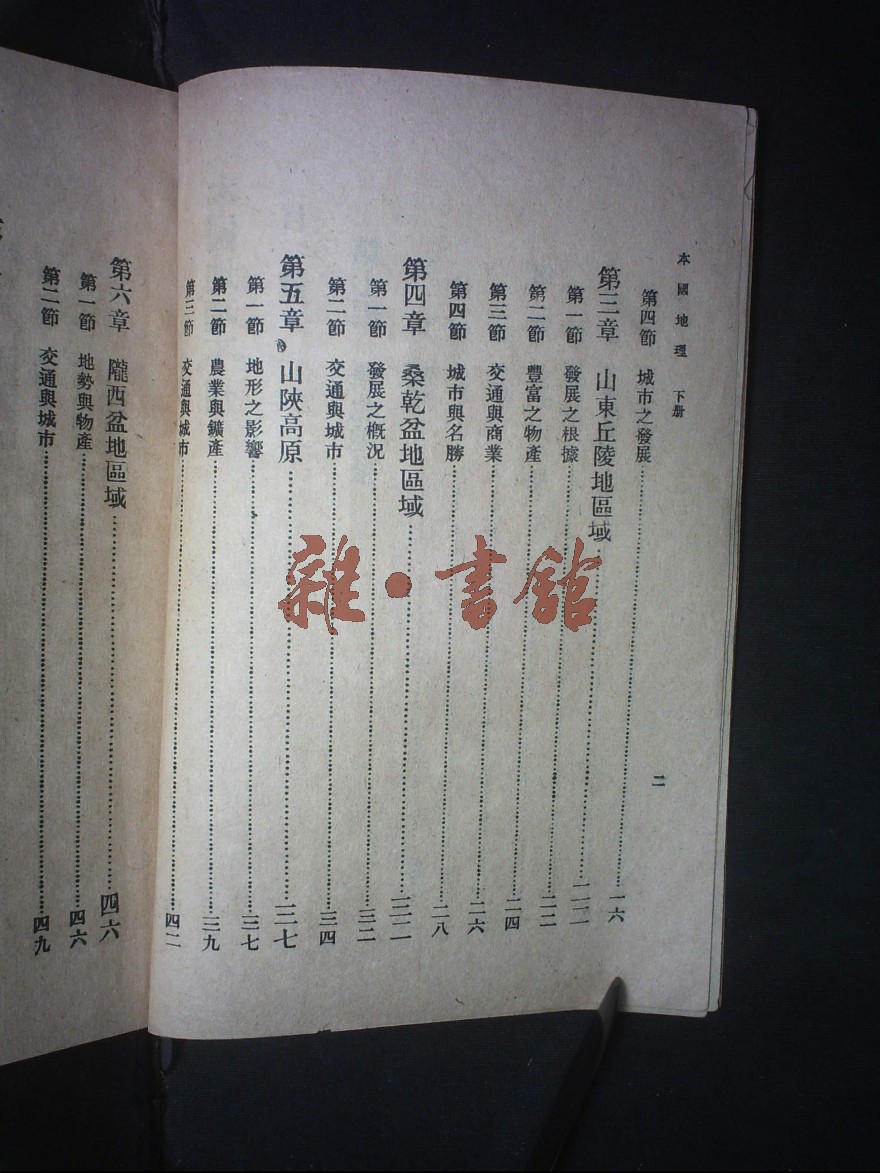 本國地理 下册
二
第四節 城市之發展 一六
第三章 山東丘陵地區域 二二
第一節 發展之根據 二二
第二節 豐富之物產 二四
第三節 交通與商業 二六
第四節 城市與名勝 二八
第四章 桑乾盆地區域 三二
第一節 發展之概況 三二
第二節 交通與城市 三四
第五章 山陝高原 三七
第一節 地形之影響 三七
第二節 農業與鑛產 三九
第三節 交通與城市 四二
第六章 隴西盆地區域 四六
第一節 地勢與物產 四六
第二節 交通與城市 四九
雜·書館